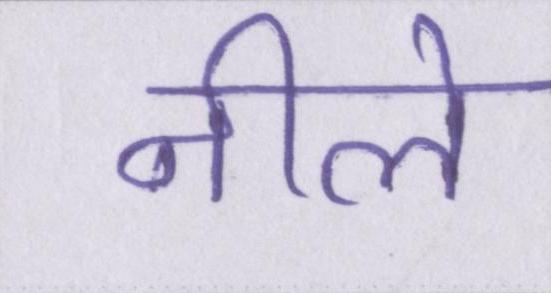 नीले